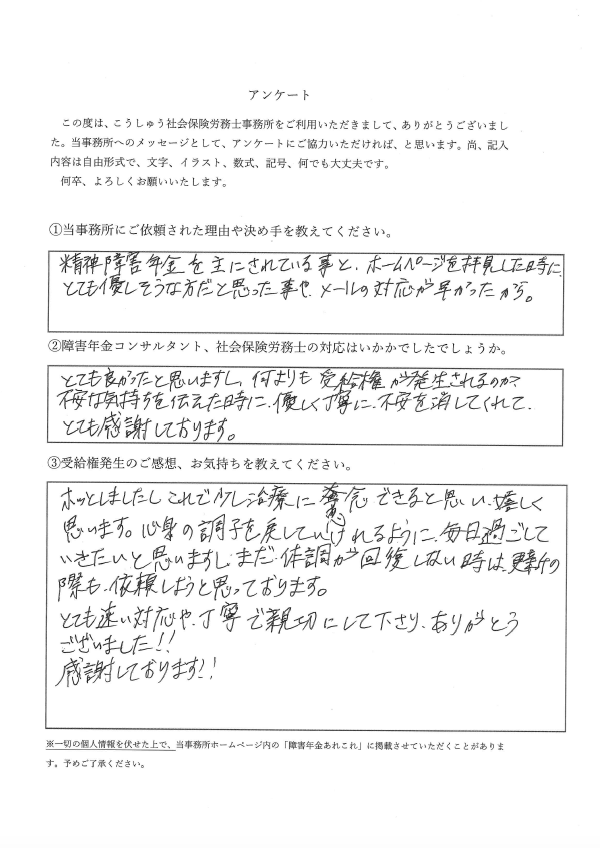 アンケート
この度は、こうしゅう社会保険労務士事務所をご利用いただきまして、ありがとうございまし
た。当事務所へのメッセージとして、アンケートにご協力いただければ、と思います。尚、記入
内容は自由形式で、文字、イラスト、数式、記号、何でも大丈夫です。
何卒、よろしくお願いいたします。
①当事務所にご依頼された理由や決め手を教えてください。
精神障害年金を主にされている事と、ホームページを拝見した時に、
とても優しそうな方だと思った事や、メールの対応が早かったから。
②障害年金コンサルタント、社会保険労務士の対応はいかかでしたでしょうか。
とても良かったと思いますし、何よりも受給権が発生されるのか?
不安な気持ちを伝えた時に、優しく丁寧に、不安を消してくれて、
とても感謝しております。
③受給権発生のご感想、お気持ちを教えてください。
ホッとしましたし これで少し治療に専念できると思い、嬉しく
思います。心身の調子を戻していけれるように、毎日過ごして
いきたいと思いますし、まだ、体調が回復しない時は、更新の
際も、依頼しようと思っております。
とても速い対応や、丁寧で親切にして下さり、ありがとう
ございました!!
感謝しております!!
※一切の個人情報を伏せた上で、当事務所ホームページ内の「障害年金あれこれ」に掲載させていただくことがありま
す。予めご了承ください。